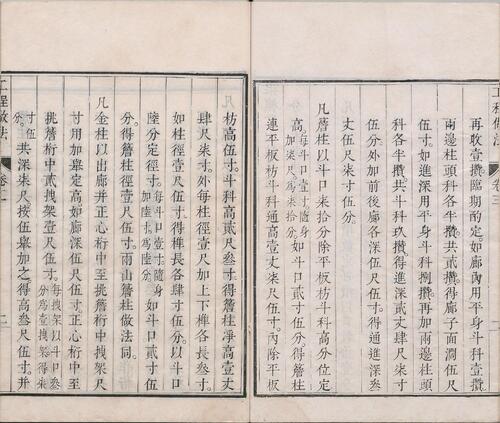 工程做法
卷三
再收壹攢臨期酌定如廊內用平身斗科壹攢
兩邊柱頭科各半攢共貳攢得廊子面濶伍尺
伍寸如進深用平身斗科捌攢再加兩邊柱頭
科各半攢共斗科玖攢得進深貳丈肆尺柒寸
伍分外加前後廊各深伍尺伍寸得通進深叁
丈伍尺柒寸伍分
凡簷柱以斗口柒拾分除平板枋斗科高分位定
高每斗口壹寸隨身加柒尺爲柒拾分如斗口貳寸伍分得簷柱
連平板枋斗科通高壹丈柒尺伍寸內除平板
枋高伍寸斗科高貳尺叁寸得簷柱淨高壹丈
肆尺柒寸外每柱徑壹尺加上下榫各長叁寸
如柱徑壹尺伍寸得榫長各肆寸伍分以斗口
陸分定徑寸每斗口壹寸隨身加陸寸爲陸分如斗口貳寸伍
分得簷柱徑壹尺伍寸兩山簷柱做法同
凡金柱以出廊并正心桁中至挑簷桁中拽架尺
寸用加舉定高如廊深伍尺伍寸正心桁中至
挑簷桁中貳拽架壹尺伍寸每拽架以斗口叁分爲壹拽架得柒
寸伍分共深柒尺按伍舉加之得高叁尺伍寸并
工程做法
卷三
二